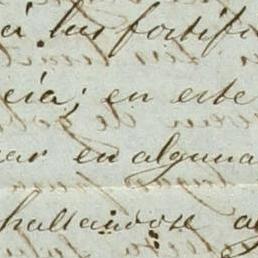 á las fortifi
cia; en este
ar en alguna
hallandose a